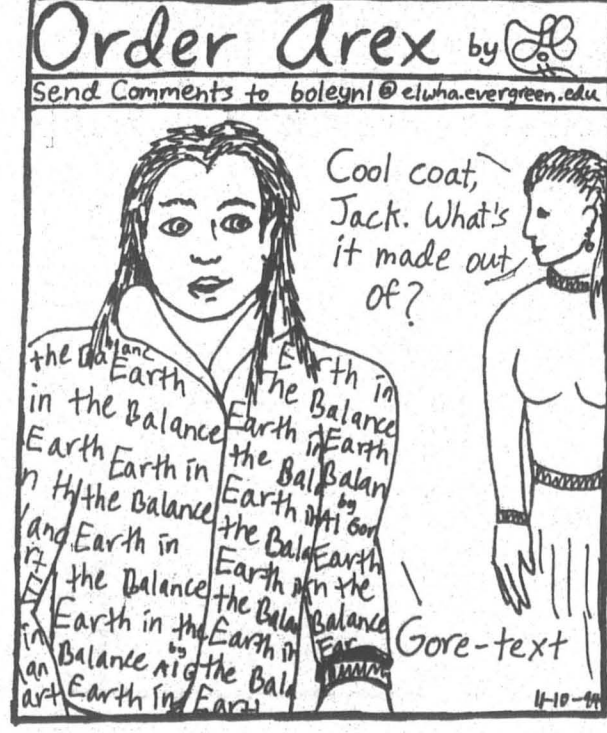 Order Arex by
Send Comments to boleynl@elwha.evergreen.edu
Cool coat,
Jack. What's
it made out
of?
the Balanc
Earth
in the Balance
Earth
Earth in
the Balance
Earth in
the Balance
Earth in the
Balance by Al G
Earth in
Earth in
The Balance
Earth in
the Bal
Earth in
the Bala
Earth in
the Balan
Earth in
the Bal
Earth
Earth
Balan
by
Al Gor
Earth
in the
Balance
Ear
Gore-text